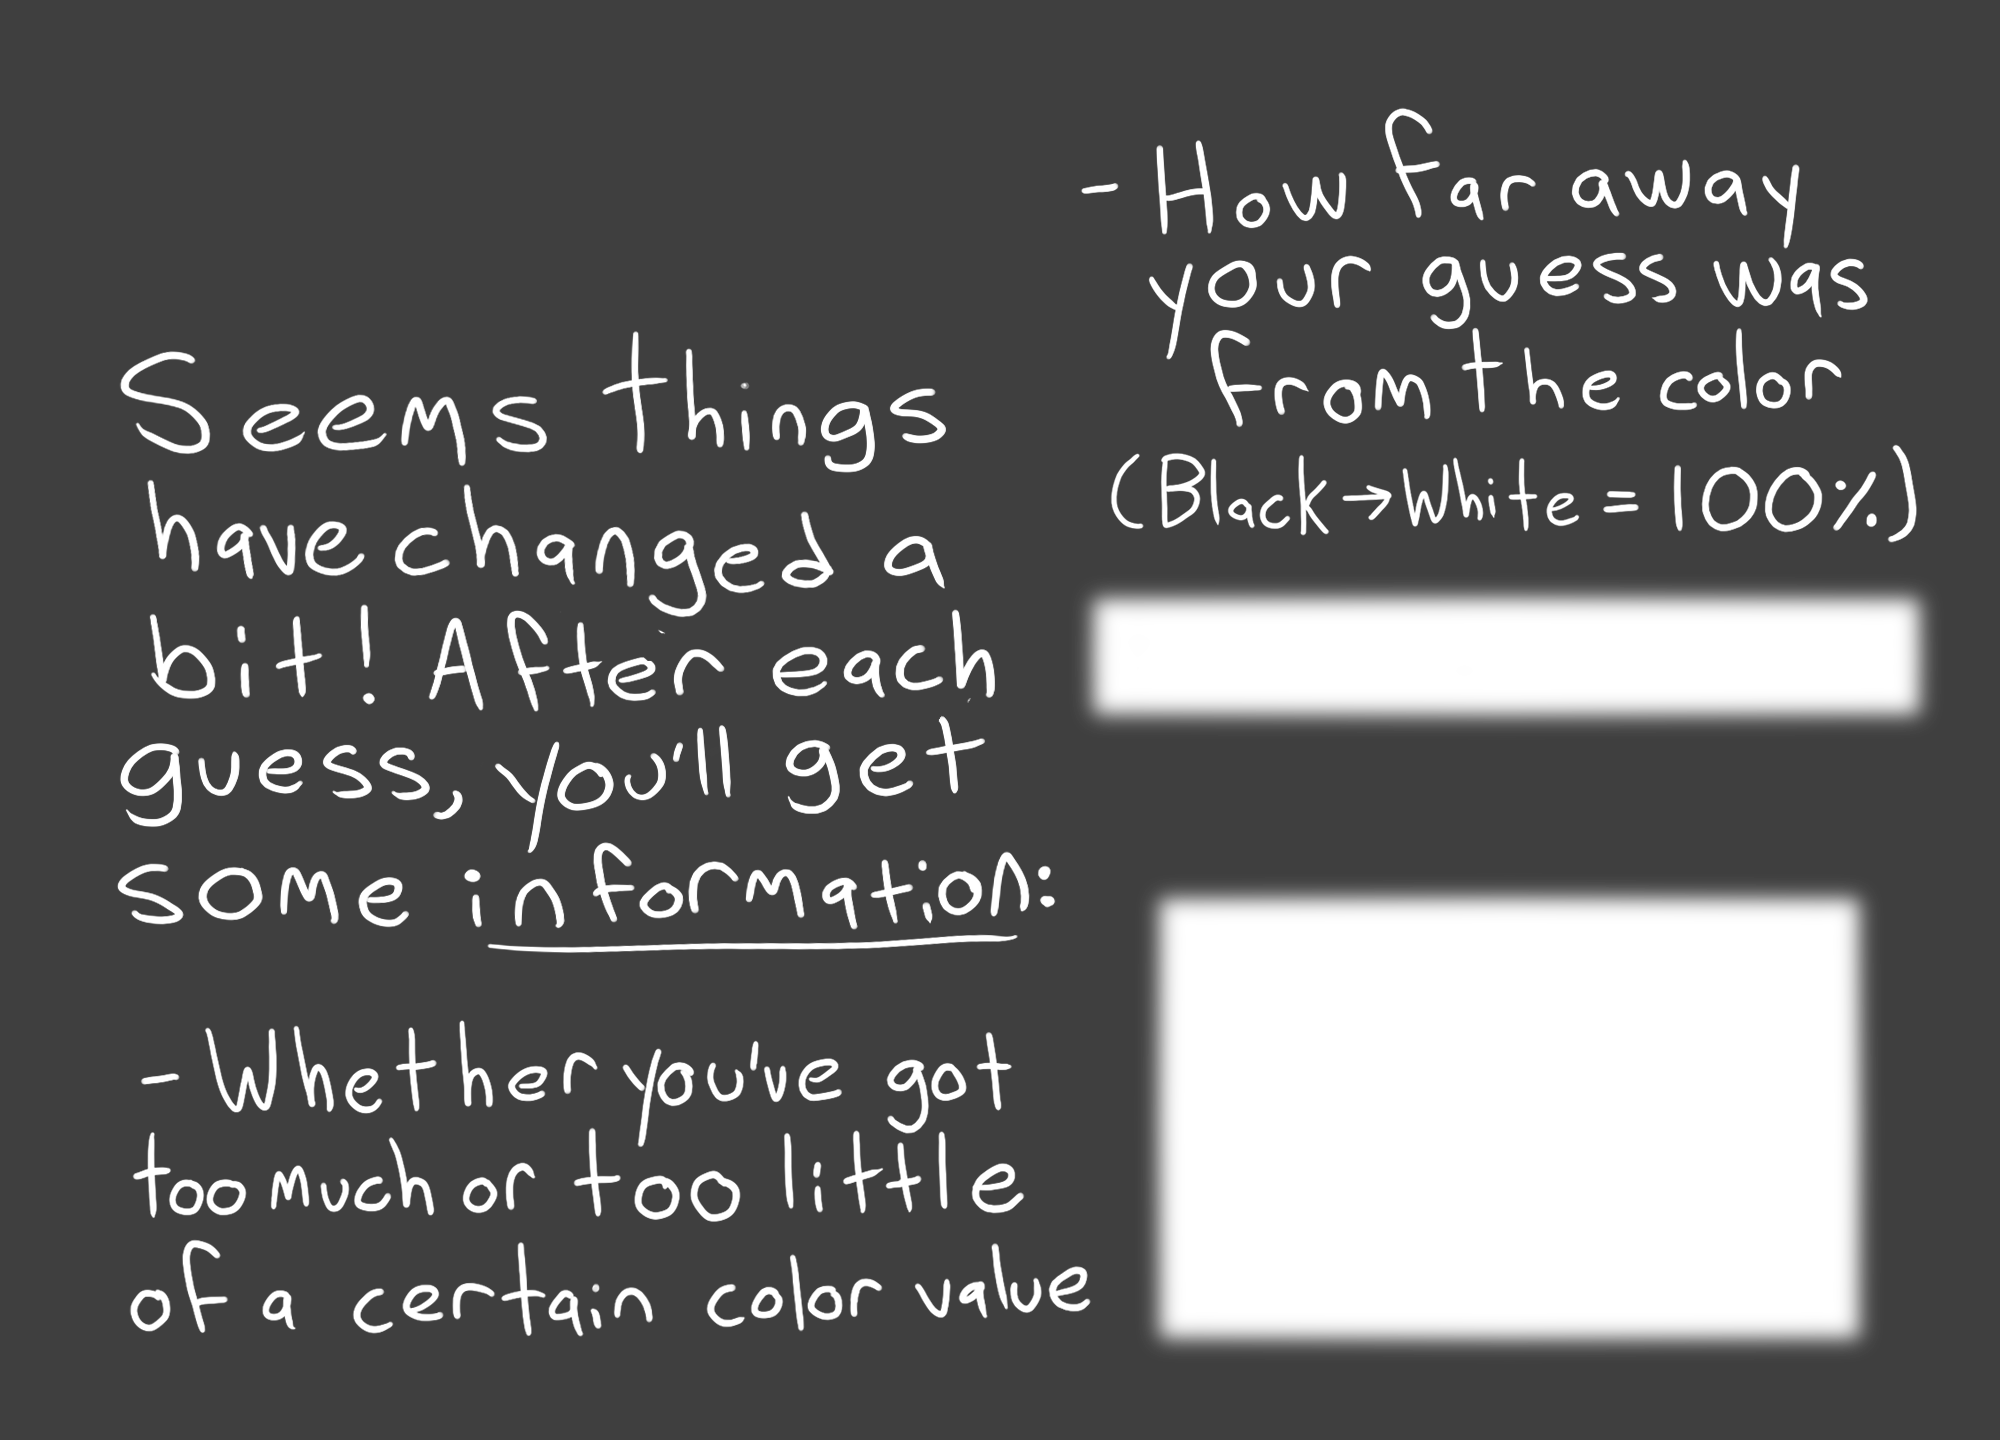 Seems things
have changed a
bit! After each
guess, you'll get
some information:
- Whether you've got
too much or too little
of a certain color value
- How far away
your guess was
from the color
(Black→White = 100%)